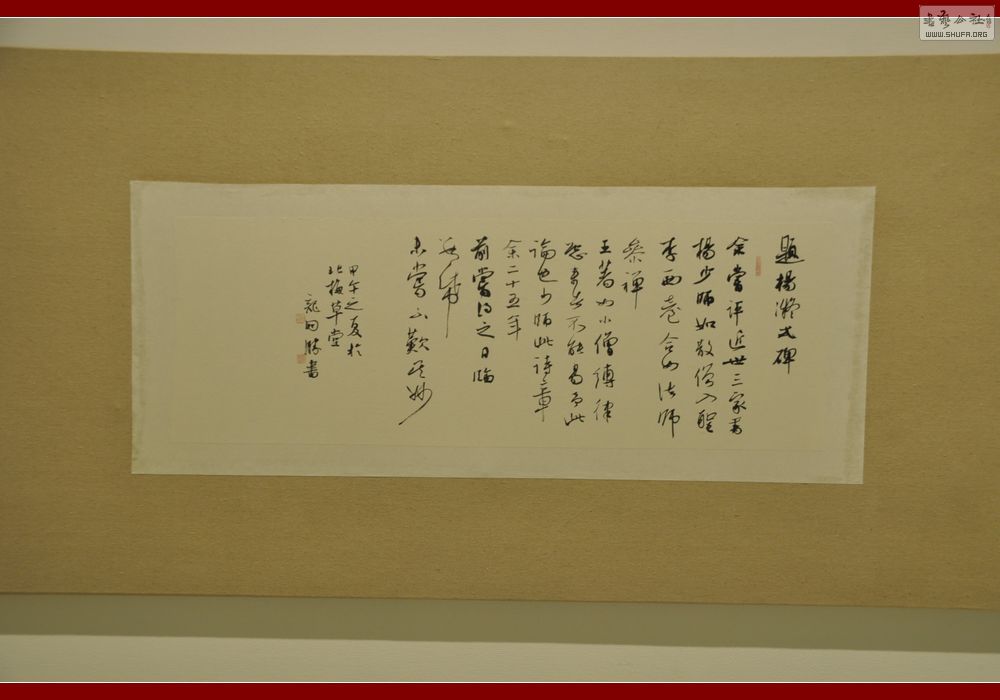 題楊凝式碑
余嘗評近世三家書
楊少師如散僧入聖
李西臺合如法師
參禪
王著如小僧縛律
恐來者不能易予此
論也少師此詩草
余二十五年
前嘗得之日臨
數紙
未嘗不歎其妙
甲午之夏於
梅草堂
龍開勝書
書藝公社
WWW.SHUFA.ORG